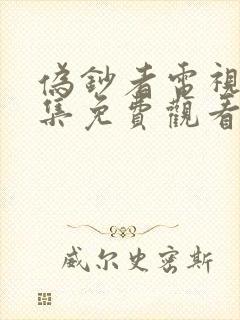 偽鈔者電視
集免費觀看
威尔史密斯